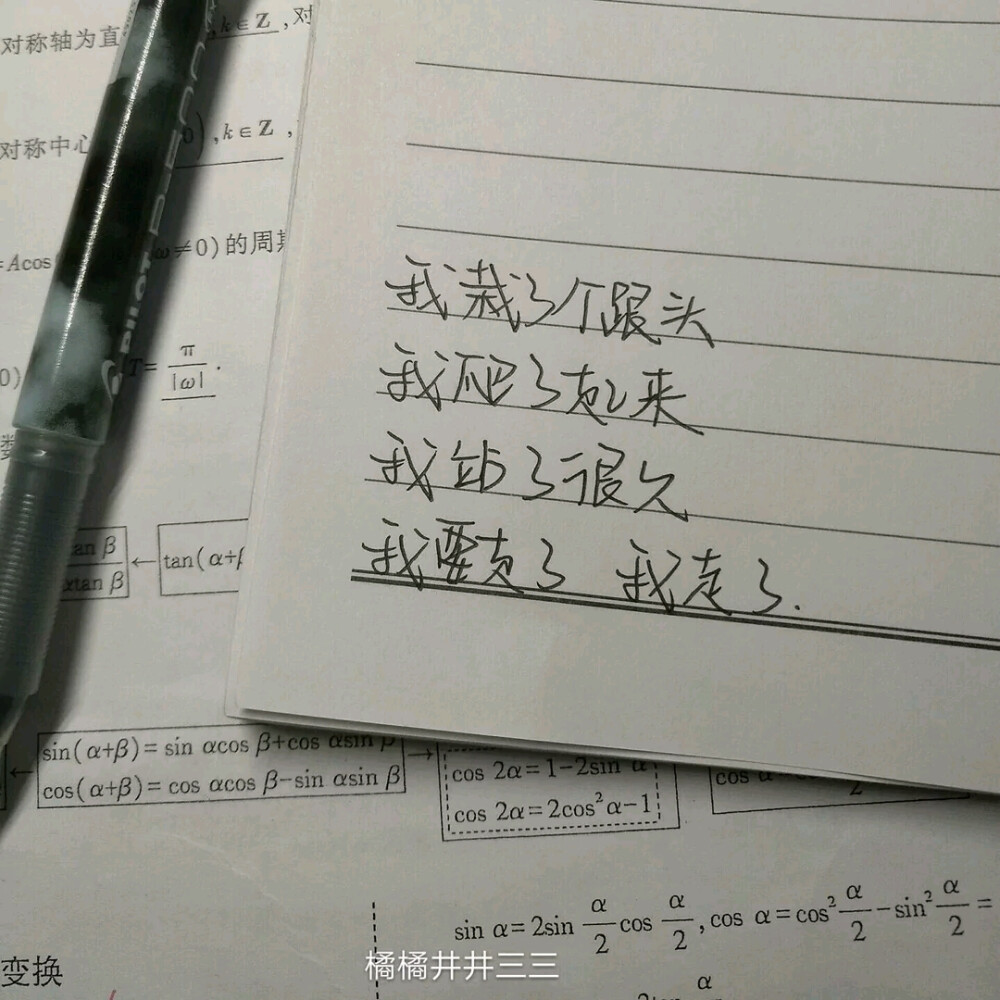 对称轴为直
,k∈Z ,对
对称中心
0),k∈Z ,
=Acos(
ω≠0)的周期
0)
T=π/|ω|.
数
PILOT
我栽了个跟头
我爬了起来
我站了很久
我要走了 我走了.
tan β
αtan β
← tan(α+β
← sin(α+β)=sin αcos β+cos αsin β →
cos(α+β)=cos αcos β-sin αsin β
cos 2α=1-2sin α
cos 2α=2cos²α-1
cos α=co
2
sin α=2sin α/2 cos α/2 ,cos α=cos² α/2 -sin² α/2 =
变换
橘橘井井三三
α